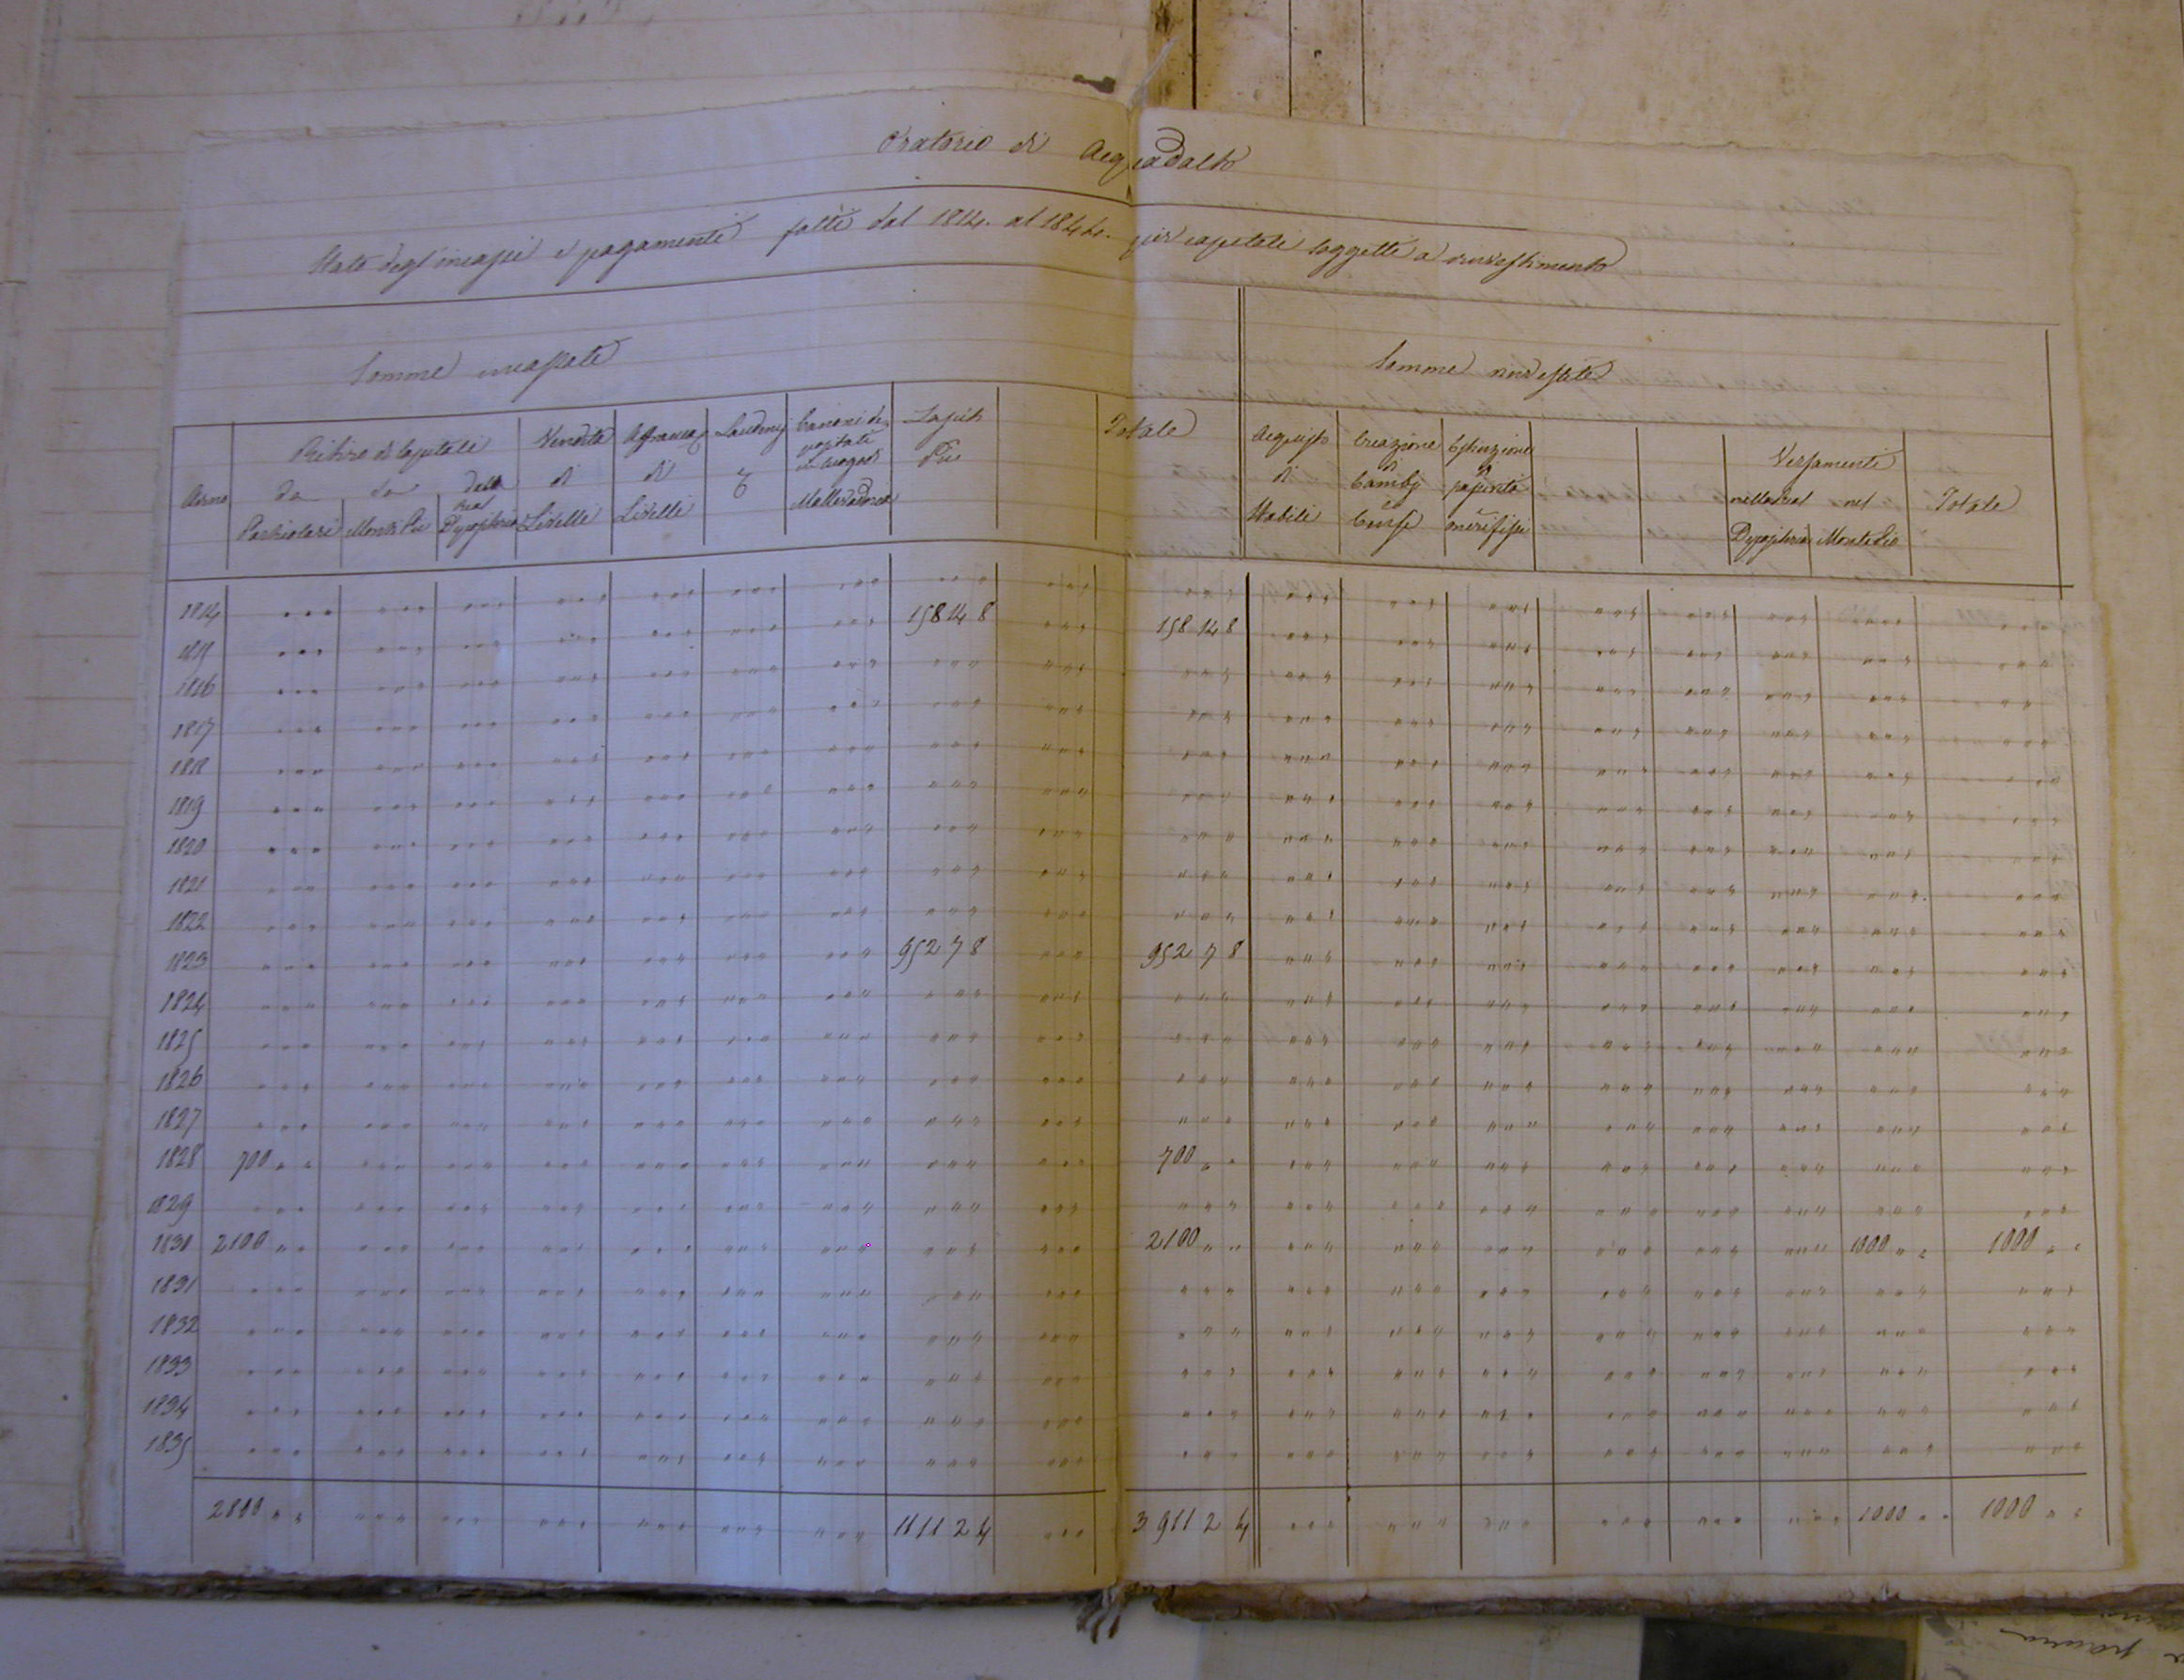 Oratorio di Acquadalto
Stato degl'incassi e pagamenti fatti dal 1814. al 1844. per capitali soggetti a rinvestimento
Somme incassate
Somme rinvestite
Anno
Ritiro di Capitali
da Particolari
da Monti Pii
dalla Real Depositeria
Vendita di Livelli
Affrancaz di Livelli
Laudemj
Canoni
Mallevadorea
Lasciti Pii
Totale
Acquisto di Stabili
Creazione di Cambj e Censi
Estinzione di passività
Versamenti
nella Real Depositeria
nel Monte Pio
Totale
1814 " " "
1815 " " " 158 14 8 158 14 8
1816 " " "
1817 " " "
1818 " " "
1819 " " "
1820 " " "
1821 " " "
1822 " " "
1823 " " " 952 7 8 952 7 8
1824 " " "
1825 " " "
1826 " " "
1827 " " "
1828 700 " " 700 " "
1829 " " "
1830 2100 " " 2100 " " 1000 " " 1000 " "
1831 " " "
1832 " " "
1833 " " "
1834 " " "
1835 " " "
2800 " " 1111 2 4 3911 2 4 1000 " " 1000 " "